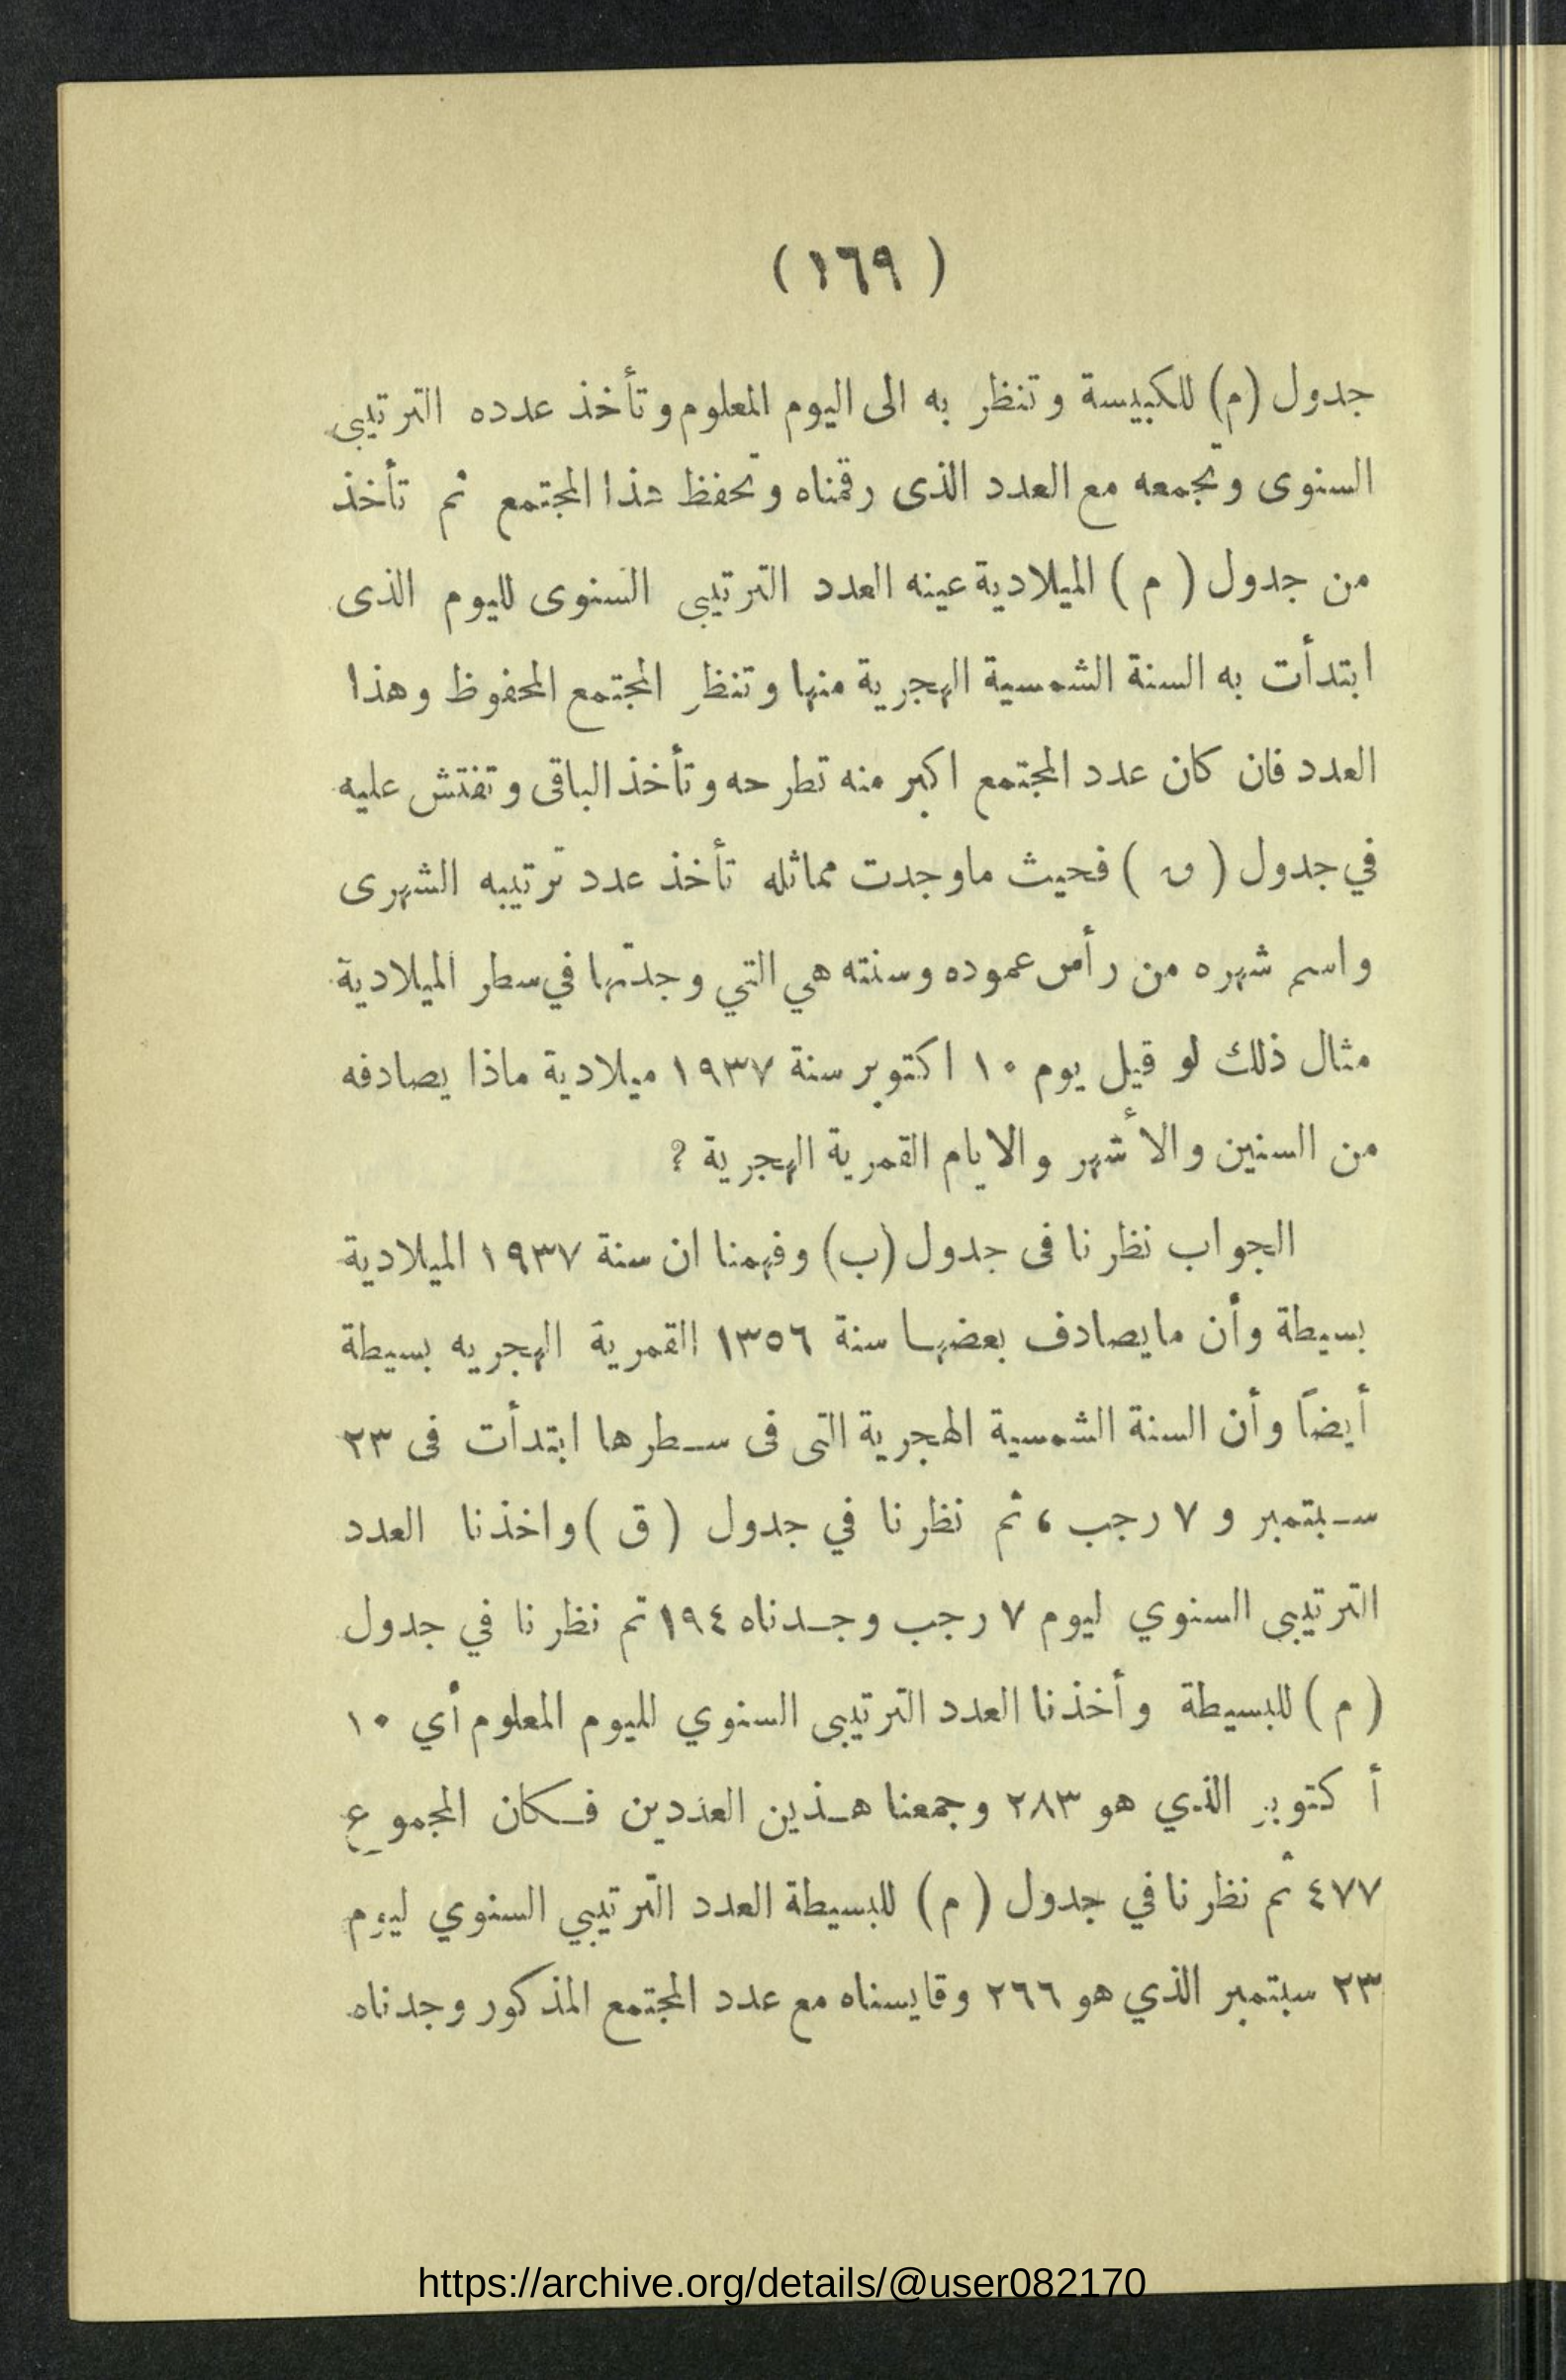 ( ١٦٩ )
جدول (م) للكبيسة وتنظر به الى اليوم المعلوم وتأخذ عدده الترتيبى
السنوى وتجمعه مع العدد الذى رقمناه وتحفظ هذا المجتمع ثم تأخذ
من جدول ( م ) الميلادية عينه العدد الترتيبى السنوى لليوم الذى
ابتدأت به السنة الشمسية الهجرية منها وتنظر المجتمع المحفوظ وهذا
العدد فان كان عدد المجتمع اكبر منه تطرحه وتأخذ الباقى وتفتش عليه
في جدول ( ق ) فحيث ماوجدت مماثله تأخذ عدد ترتيبه الشهرى
واسم شهره من رأس عموده وسنته هي التي وجدتها في سطر الميلادية
مثال ذلك لو قيل يوم ١٠ اكتوبر سنة ١٩٣٧ ميلادية ماذا يصادفه
من السنين والأشهر والايام القمرية الهجرية ؟
الجواب نظرنا فى جدول (ب) وفهمنا ان سنة ١٩٣٧ الميلادية
بسيطة وأن مايصادف بعضها سنة ١٣٥٦ القمرية الهجريه بسيطة
أيضاً وأن السنة الشمسية الهجرية التى فى سـطرها ابتدأت فى ٢٣
سـبتمبر و ٧ رجب ، ثم نظرنا في جدول ( ق ) واخذنا العدد
الترتيبى السنوي ليوم ٧ رجب وجـدناه ١٩٤ تم نظرنا في جدول
( م ) للبسيطة وأخذنا العدد الترتيبى السنوي لليوم المعلوم أي ١٠
أ كتوبر الذي هو ٢٨٣ وجمعنا هـذين العددين فـكان المجموع
٤٧٧ ثم نظرنا في جدول ( م ) للبسيطة العدد الترتيبي السنوي ليوم
٢٣ سبتمبر الذي هو ٢٦٦ وقايسناه مع عدد المجتمع المذكور وجدناه
https://archive.org/details/@user082170